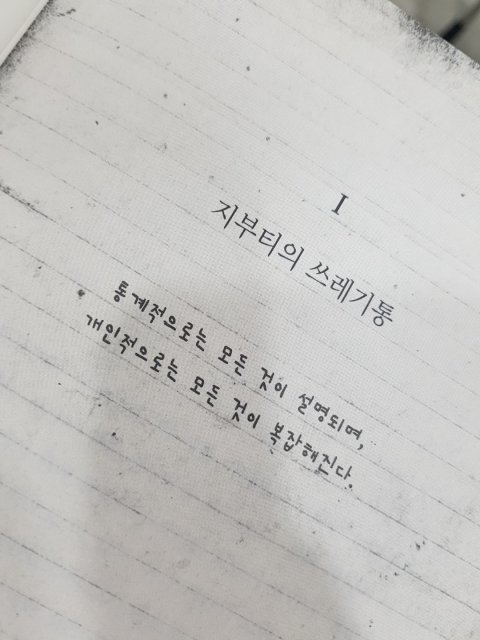 I
지부티의 쓰레기통
통계적으로는 모든 것이 설명되며,
개인적으로는 모든 것이 복잡해진다.